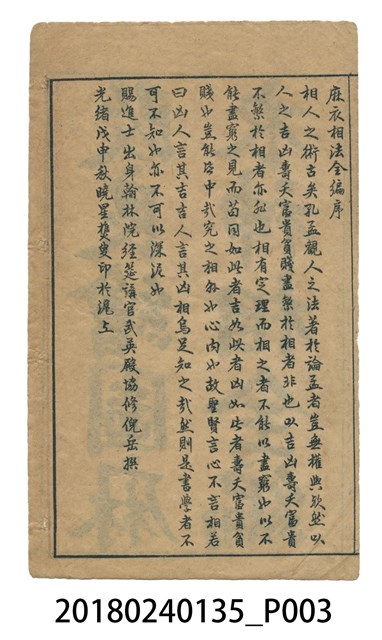 麻衣相法全編序
相人之術古矣孔孟觀人之法著於論孟者豈無權輿欤然以
人之吉凶壽夭富貴貧賤盡繫於相者非也以吉凶壽夭富貴
不繫於相者亦非也相有定理而相之者不能以盡窮也以不
能盡窮之見而苟同如此者吉如此者凶如此者壽夭富貴貧
賤也豈能皆中哉究之相外也心内也故聖賢言心不言相若
曰凶人言其吉吉人言其凶相烏足知之哉然則是書學者不
可不知也亦不可以深泥也
賜進士出身翰林院經筵講官武英殿協修倪岳撰
光緒戊申秋曉星樵叟印於滬上
20180240135_P003